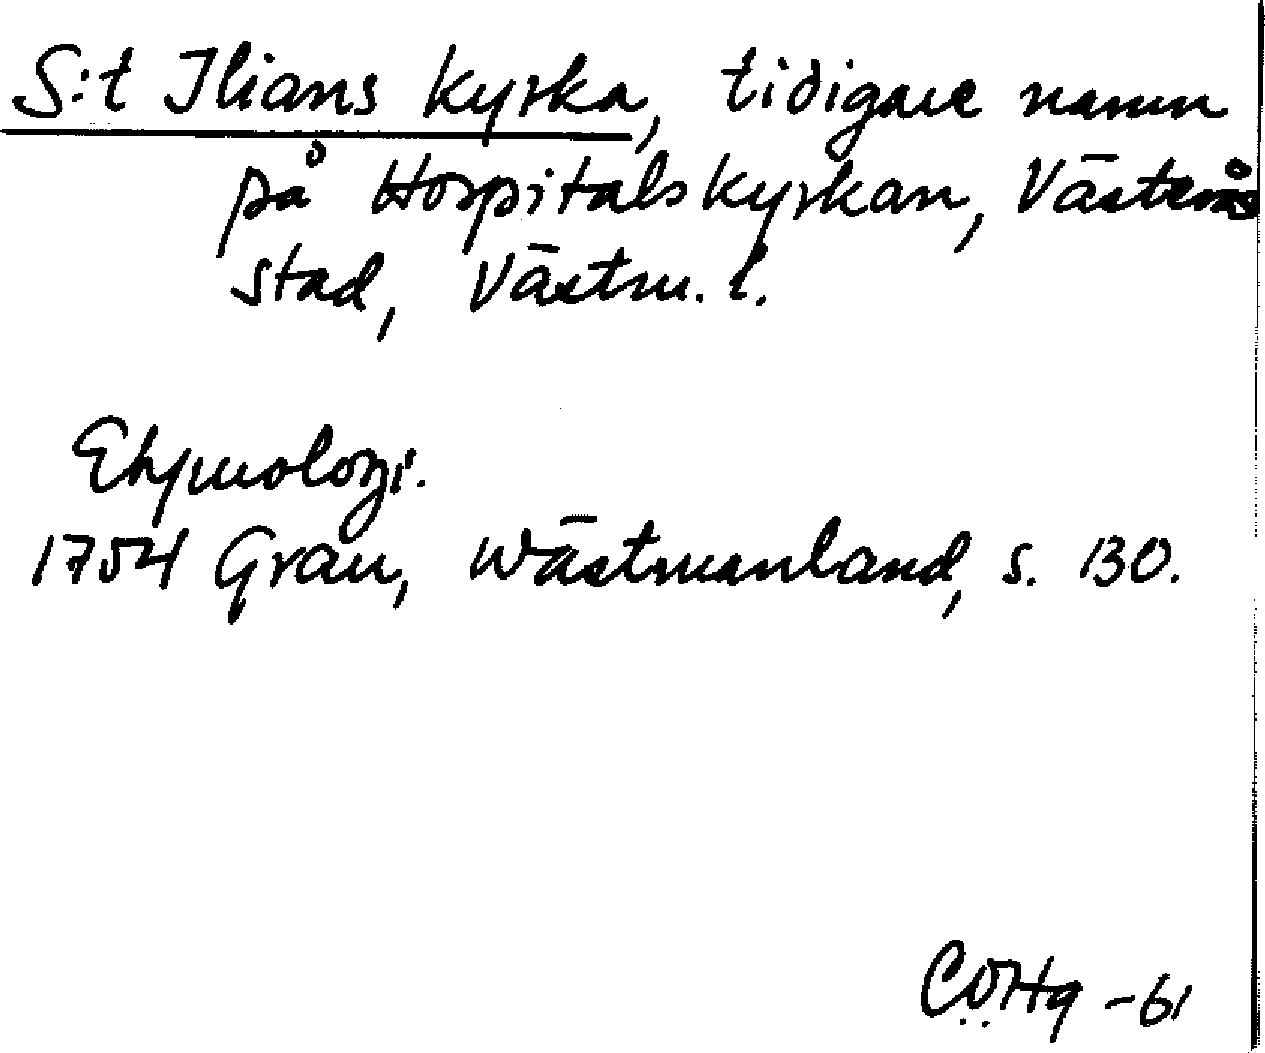 S:t Ilians kyrka, tidigare namn
på Hospitalskyrkan, Västerås
stad, Västm. l.
Etymologi.
1754 Grau, Wästmanland, s. 130.
-61